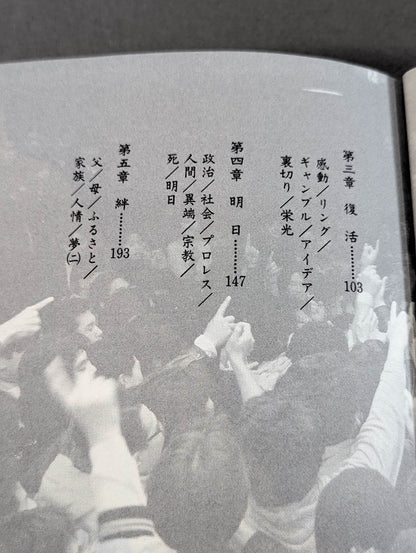 第三章 復活………103
感動／リング／
ギャンブル／アイデア／
裏切り／栄光
第四章 明日………147
政治／社会／プロレス／
人間／異端／宗教／
死／明日
第五章 絆………193
父／母／ふるさと／
家族／人情／夢(二)